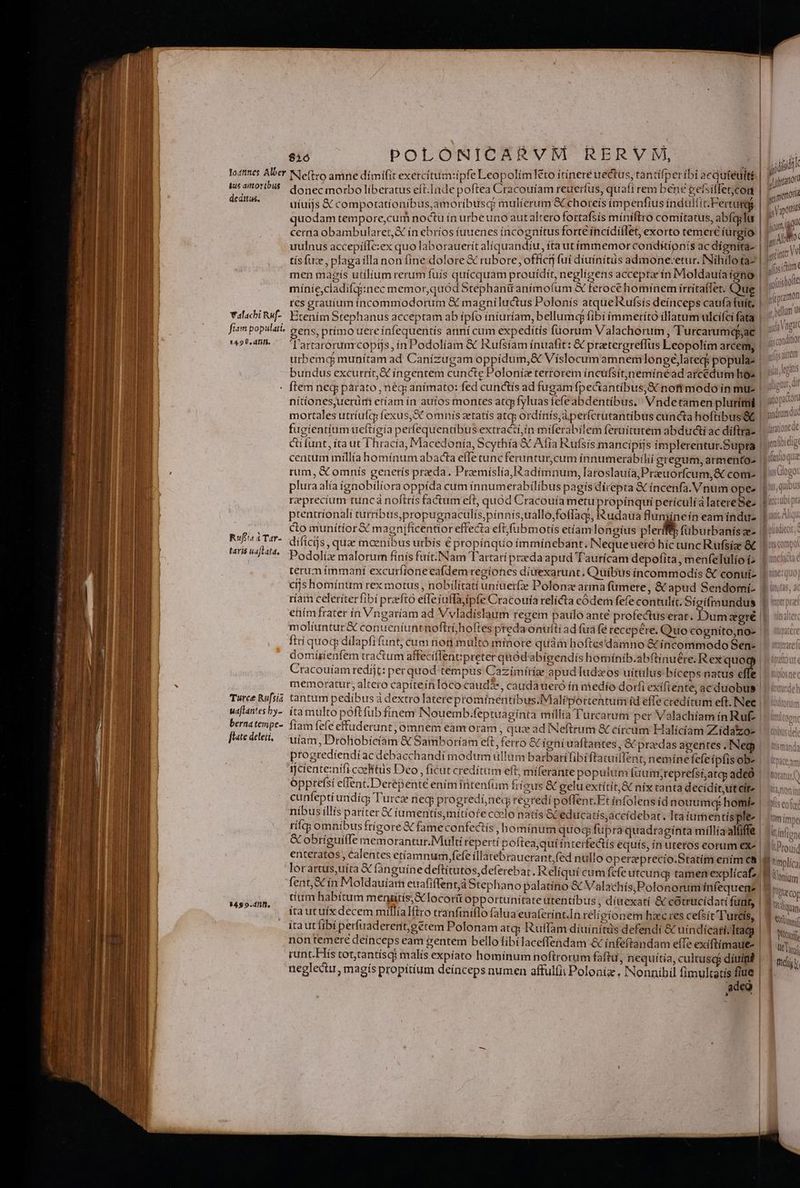 810 POLONICARVM RERVM,
Ioannes Alber
tus amoribus
deditus.
Neſtro amne dimiſit exercitum: ipſe Leopolim leto itinere uectus, tantiſper ibi acquieuit,
donec morbo liberatus eſt. Inde poſtea Cracouiam reuerſus, quaſi rem bene geſsiſſet, con
uiuijs & compotationibus, amoribusq; mulierum & choreis impenſius indulſit. Ferturq;
quodam tempore, cum noctu in urbe uno aut altero fortaſsis miniſtro comitatus, abſq; lu
cerna obambularet, & in ebrios iuuenes incognitus forte incidiſſet, exorto temere iurgio
uulnus accepiſſe: ex quo laborauerit aliquandiu, ita ut immemor conditionis ac dignita-
tis ſuæ, plaga illa non ſine dolore & rubore, officij ſui diuinitus admoneretur. Nihilo ta-
men magis utilium rerum ſuis quicquam prouidit, negligens acceptæ in Moldauia igno
miniæ, cladiſq;: nec memor, quòd Stephanũ animoſum & ferocē hominem irritaſſet. Que
res grauium incommodorum & magni luctus Polonis atque Ruſsis deinceps cauſa fuit.
Valachi Ruſ-
ſiam populati.
1498. ann.
Etenim Stephanus acceptam ab ipſo iniuriam, bellumq; ſibi immeritò illatum ulciſci fata
gens, primo uere inſequentis anni cum expeditis ſuorum Valachorum, Turcarumq;, ac
Tartarorum copijs, in Podoliam & Ruſsiam inuaſit: & prætergreſſus Leopolim arcem,
urbemq; munitam ad Canizugam oppidum, & Viſlocum amnem longè, lateq; popula-
bundus excurrit, & ingentem cunctæ Poloniæ terrorem incuſsit, nemine ad arcēdum ho-
ſtem neq; parato, neq; animato: ſed cunctis ad fugam ſpectantibus, & non modo in mu-
nitiones, uerùm etiam in auios montes atq; ſyluas ſeſe abdentibus. Vnde tamen plurimi
mortales utriuſq; ſexus, & omnis ætatis atq; ordinis, à perſcrutantibus cuncta hoſtibus &
fugientium ueſtigia perſequentibus extracti, in miſerabilem ſeruitutem abducti ac diſtra-
cti ſunt, ita ut Thracia, Macedonia, Scythia & Aſia Ruſsis mancipijs implerentur. Supra
centum millia hominum abacta eſſe tunc feruntur, cum innumerabili gregum, armento-
rum, & omnis generis præda. Præmiſlia, Radimnum, Iaroslauia, Præuorſcum, & com-
plura alia ignobiliora oppida cum innumerabilibus pagis direpta & incenſa. Vnum ope-
ræprecium tunc à noſtris factum eſt, quòd Cracouia metu propinqui periculi à latere Se-
ptentrionali turribus, propugnaculis, pinnis, uallo, foſſaq;, Rudaua flumine in eam indu-
cto munitior & magnificentior effecta eſt, ſubmotis etiam longius plerisq; ſuburbanis æ-
Ruſſia à Tar-
taris uaſtata.
dificijs, quæ mœnibus urbis è propinquo imminebant. Neque uerò hic tunc Ruſsiæ &
Podoliæ malorum finis fuit. Nam Tartari præda apud Tauricam depoſita, menſe Iulio i-
terum immani excurſione eaſdem regiones diuexarunt. Quibus incommodis & conui-
cijs hominum rex motus, nobilitati uniuerſæ Polonæ arma ſumere, & apud Sendomi-
riam celeriter ſibi præſto eſſe iuſſa, ipſe Cracouia relicta eódem ſeſe contulit. Sigiſmundus
enim frater in Vngariam ad Vvladislaum regem paulo antè profectus erat. Dum ægrè
moliuntur & conueniunt noſtri, hoſtes præda onuſti ad ſua ſe recepêre. Quo cognito, no-
ſtri quoq; dilapſi ſunt, cum non multo minore quàm hoſtes damno & incommodo Sen-
domirienſem tractum affeciſſent: preter quòd abigendis hominib. abſtinuêre. Rex quoq;
Cracouiam redijt: per quod tempus Cazimiriæ apud Iudæos uitulus biceps natus eſſe
memoratur, altero capite in loco caudæ, cauda uerò in medio dorſi exiſtente, ac duobus
Turcæ Ruſsiã
uaſtantes hy-
berna tempe-
ſtate deleti.
tantum pedibus à dextro latere prominentibus. Mali portentum id eſſe creditum eſt. Nec
ita multo pòſt ſub finem Nouemb. ſeptuaginta millia Turcarum per Valachiam in Ruſ-
ſiam ſeſe effuderunt, omnem eam oram, quæ ad Neſtrum & circum Haliciam Zidazo-
uiam, Drohobiciam & Samboriam eſt, ferro & igni uaſtantes, & prædas agentes. Neq;
progrediendi ac debacchandi modum ullum barbari ſibi ſtatuiſſent, nemine ſeſe ipſis ob-
ijciente: niſi cœlitùs Deo, ſicut creditum eſt, miſerante populum ſuum, repreſsi, atq; adeò
oppreſsi eſſent. Derepente enim intenſum frigus & gelu extitit, & nix tanta decidit, ut cir-
cunſepti undiq; Turcæ neq; progredi, neq; regredi poſſent. Et inſolens id nouumq; homi-
nibus illis pariter & iumentis, mitiore cœlo natis & educatis, accidebat. Ita iumentis ple-
riſq; omnibus frigore & fame confectis, hominum quoq; ſupra quadraginta millia alſiſſe
& obriguiſſe memorantur. Multi reperti poſtea, qui interfectis equis, in uteros eorum ex-
enteratos, calentes etiamnum, ſeſe illatebrauerant, ſed nullo operæprecio. Statim enim că
lor artus, uita & ſanguine deſtitutos, deſerebat. Reliqui cum ſeſe utcunq; tamen explicaſ-
ſent, & in Moldauiam euaſiſſent, à Stephano palatino & Valachis, Polonorum inſequen-
1499. ann.
tium habitum mentitis, & locorũ opportunitate utentibus, diuexati & cōtrucidati ſunt,
ita ut uix decem millia Iſtro tranſmiſſo ſalua euaſerint. In religionem hæc res ceſsit Turcis,
ita ut ſibi perſuaderent, gētem Polonam atq; Ruſſam diuinitùs defendi & uindicari. Itaq;
non temerè deinceps eam gentem bello ſibi laceſſendam & infeſtandam eſſe exiſtimaue-
runt. His tot, tantisq; malis expiato hominum noſtrorum faſtu, nequitia, cultusq; diuini
neglectu, magis propitium deinceps numen affulſit Poloniæ. Nonnihil ſimultatis ſiue
adeò